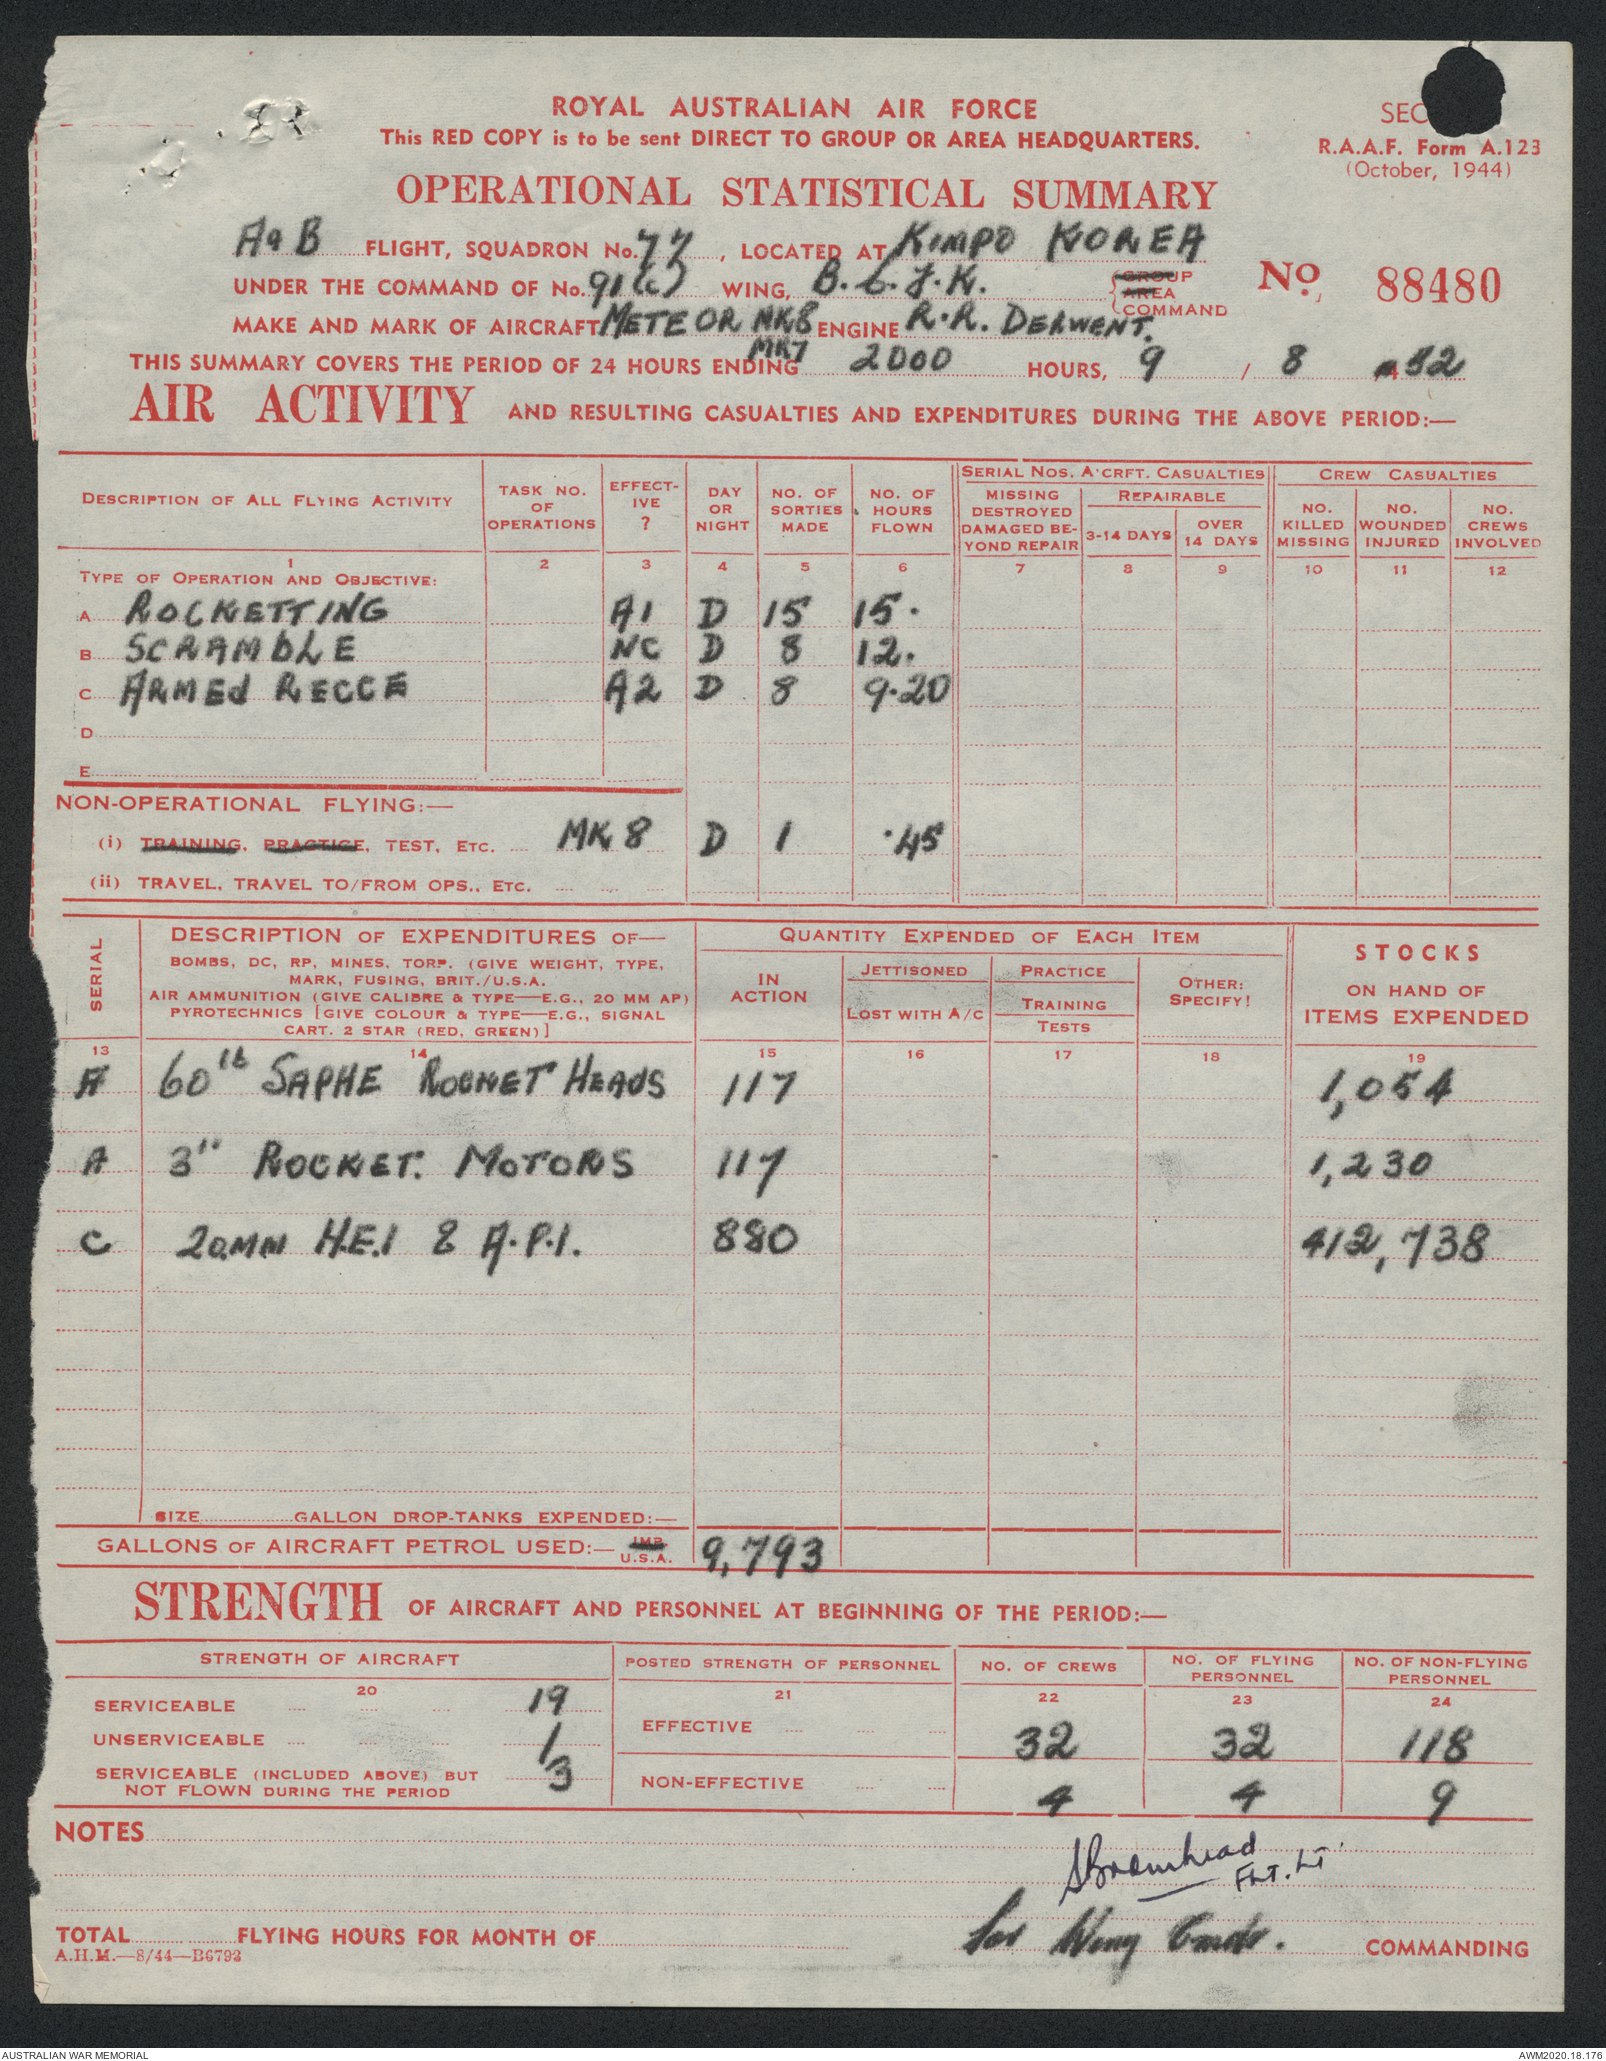 ROYAL AUSTRALIAN AIR FORCE
This RED COPY is to be sent DIRECT TO GROUP OR AREA HEADQUARTERS.
SEC
R.A.A.F. Form A.123
(October, 1944)
OPERATIONAL STATISTICAL SUMMARY
A & B FLIGHT, SQUADRON No. 77, LOCATED AT KIMPO KOREA
UNDER THE COMMAND OF No. 91(C) WING, B.C.F.K. GROUP AREA COMMAND
No. 88480
MAKE AND MARK OF AIRCRAFT METEOR MK8 ENGINE R.R. DERWENT.
MK7
THIS SUMMARY COVERS THE PERIOD OF 24 HOURS ENDING 2000 HOURS, 9 / 8 / 52
AIR ACTIVITY AND RESULTING CASUALTIES AND EXPENDITURES DURING THE ABOVE PERIOD:—
DESCRIPTION OF ALL FLYING ACTIVITY
TASK NO. OF OPERATIONS
EFFECT-IVE ?
DAY OR NIGHT
NO. OF SORTIES MADE
NO. OF HOURS FLOWN
SERIAL NOS. A'CRFT. CASUALTIES
MISSING DESTROYED DAMAGED BE-YOND REPAIR
REPAIRABLE
3-14 DAYS
OVER 14 DAYS
CREW CASUALTIES
NO. KILLED MISSING
NO. WOUNDED INJURED
NO. CREWS INVOLVED
1 2 3 4 5 6 7 8 9 10 11 12
TYPE OF OPERATION AND OBJECTIVE:
A ROCKETTING A1 D 15 15.
B SCRAMBLE NC D 8 12.
C ARMED RECCE A2 D 8 9.20
D
E
NON-OPERATIONAL FLYING:—
(i) TRAINING, PRACTICE, TEST, ETC. MK 8 D 1 .45
(ii) TRAVEL, TRAVEL TO/FROM OPS., ETC.
SERIAL
DESCRIPTION OF EXPENDITURES OF—
BOMBS, DC, RP, MINES, TORP. (GIVE WEIGHT, TYPE,
MARK, FUSING, BRIT./U.S.A.
AIR AMMUNITION (GIVE CALIBRE & TYPE—E.G., 20 MM AP)
PYROTECHNICS [GIVE COLOUR & TYPE—E.G., SIGNAL
CART. 2 STAR (RED, GREEN)]
QUANTITY EXPENDED OF EACH ITEM
IN ACTION
JETTISONED
LOST WITH A/C
PRACTICE
TRAINING
TESTS
OTHER: SPECIFY!
STOCKS
ON HAND OF
ITEMS EXPENDED
13 14 15 16 17 18 19
A 60 lb SAPHE ROCKET HEADS 117 1,054
A 3" ROCKET. MOTORS 117 1,230
C 20MM H.E.I & A.P.I. 880 412,738
SIZE GALLON DROP-TANKS EXPENDED:—
GALLONS OF AIRCRAFT PETROL USED:— IMP. U.S.A. 9,793
STRENGTH OF AIRCRAFT AND PERSONNEL AT BEGINNING OF THE PERIOD:—
STRENGTH OF AIRCRAFT
POSTED STRENGTH OF PERSONNEL
NO. OF CREWS
NO. OF FLYING PERSONNEL
NO. OF NON-FLYING PERSONNEL
20 21 22 23 24
SERVICEABLE 19
UNSERVICEABLE 1
SERVICEABLE (INCLUDED ABOVE) BUT
NOT FLOWN DURING THE PERIOD 3
EFFECTIVE 32 32 118
NON-EFFECTIVE 4 4 9
NOTES
SBramhead
FLT. LT
TOTAL FLYING HOURS FOR MONTH OF
for Wing Cmdr. COMMANDING
A.H.M.—8/44—B6793
AUSTRALIAN WAR MEMORIAL
AWM2020.18.176